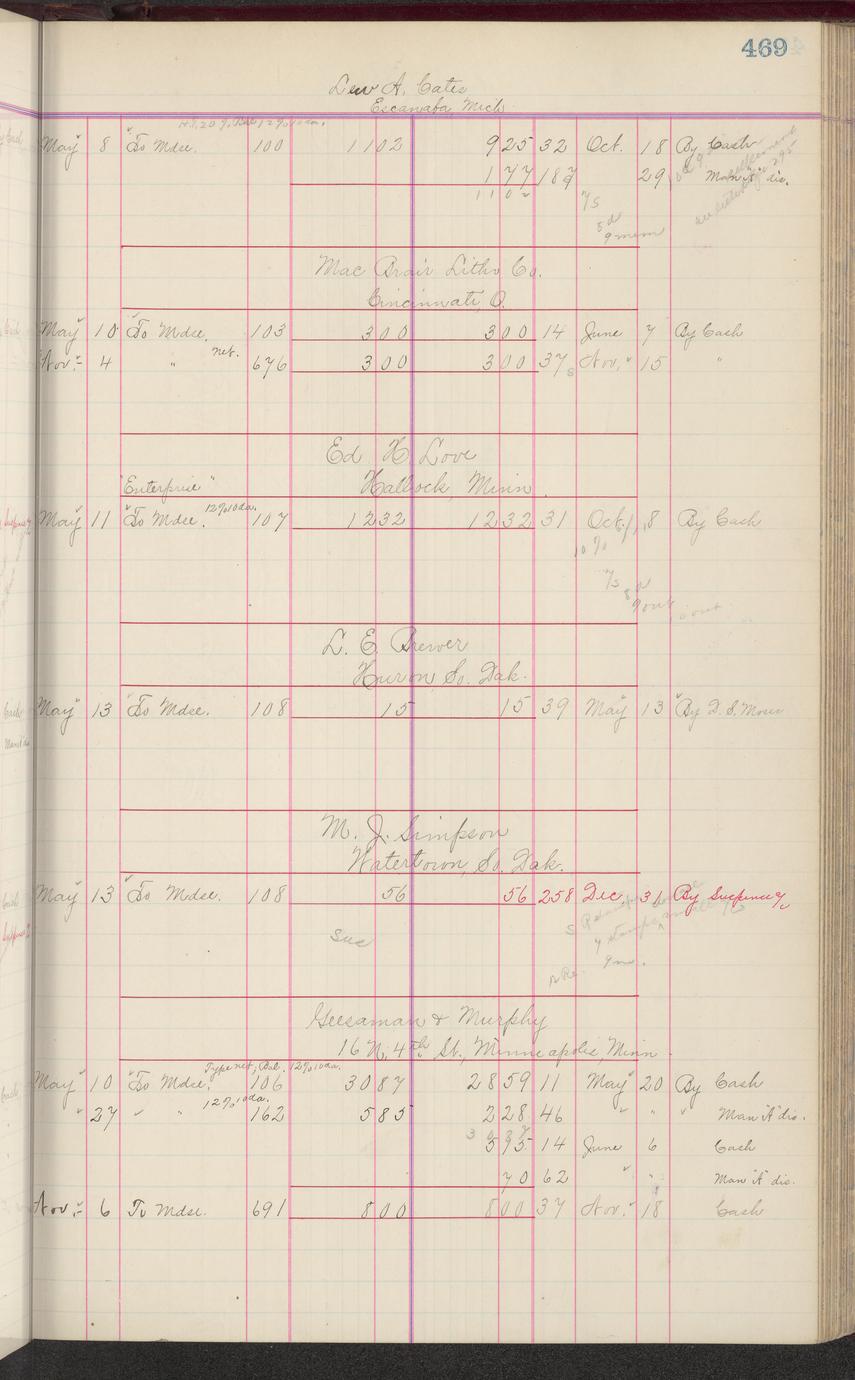 469
Lew A. Cates
Escanaba Mich
May 8 To Mdse. 100 1102 925 32 Oct. 18 By Cash
177 187 29 Man "A" dis.
1102 7/5
Mac Brair Litho Co.
Cincinnati, O.
May 10 To Mdse. 103 300 300 14 June 7 By Cash
net.
Nov. 4 " 676 300 300 37 Nov. 15 "
Ed H Love
"Enterprise" Hallock, Minn.
12% 10 da.
May 11 To Mdse. 107 1232 1232 31 Oct. 8 By Cash
10%
7/5
L. E. Brewer
Huron, So. Dak.
May 13 To Mdse. 108 15 15 39 May 13 By D. S. Moser
M. J. Simpson
Watertown, So. Dak.
May 13 To Mdse. 108 56 56 258 Dec. 31 By Suspense
Sus
Geesaman & Murphy
16 N. 4th St., Minneapolis Minn
Type net; Bal. 12% 10 da.
May 10 To Mdse. 106 3087 2859 11 May 20 By Cash
12% 10 da.
" 27 " " 162 585 228 46 " " " Man "A" dis.
515 14 June 6 Cash
70 62 " " Man "A" dis.
Nov. 6 To Mdse. 691 800 800 37 Nov. 18 Cash